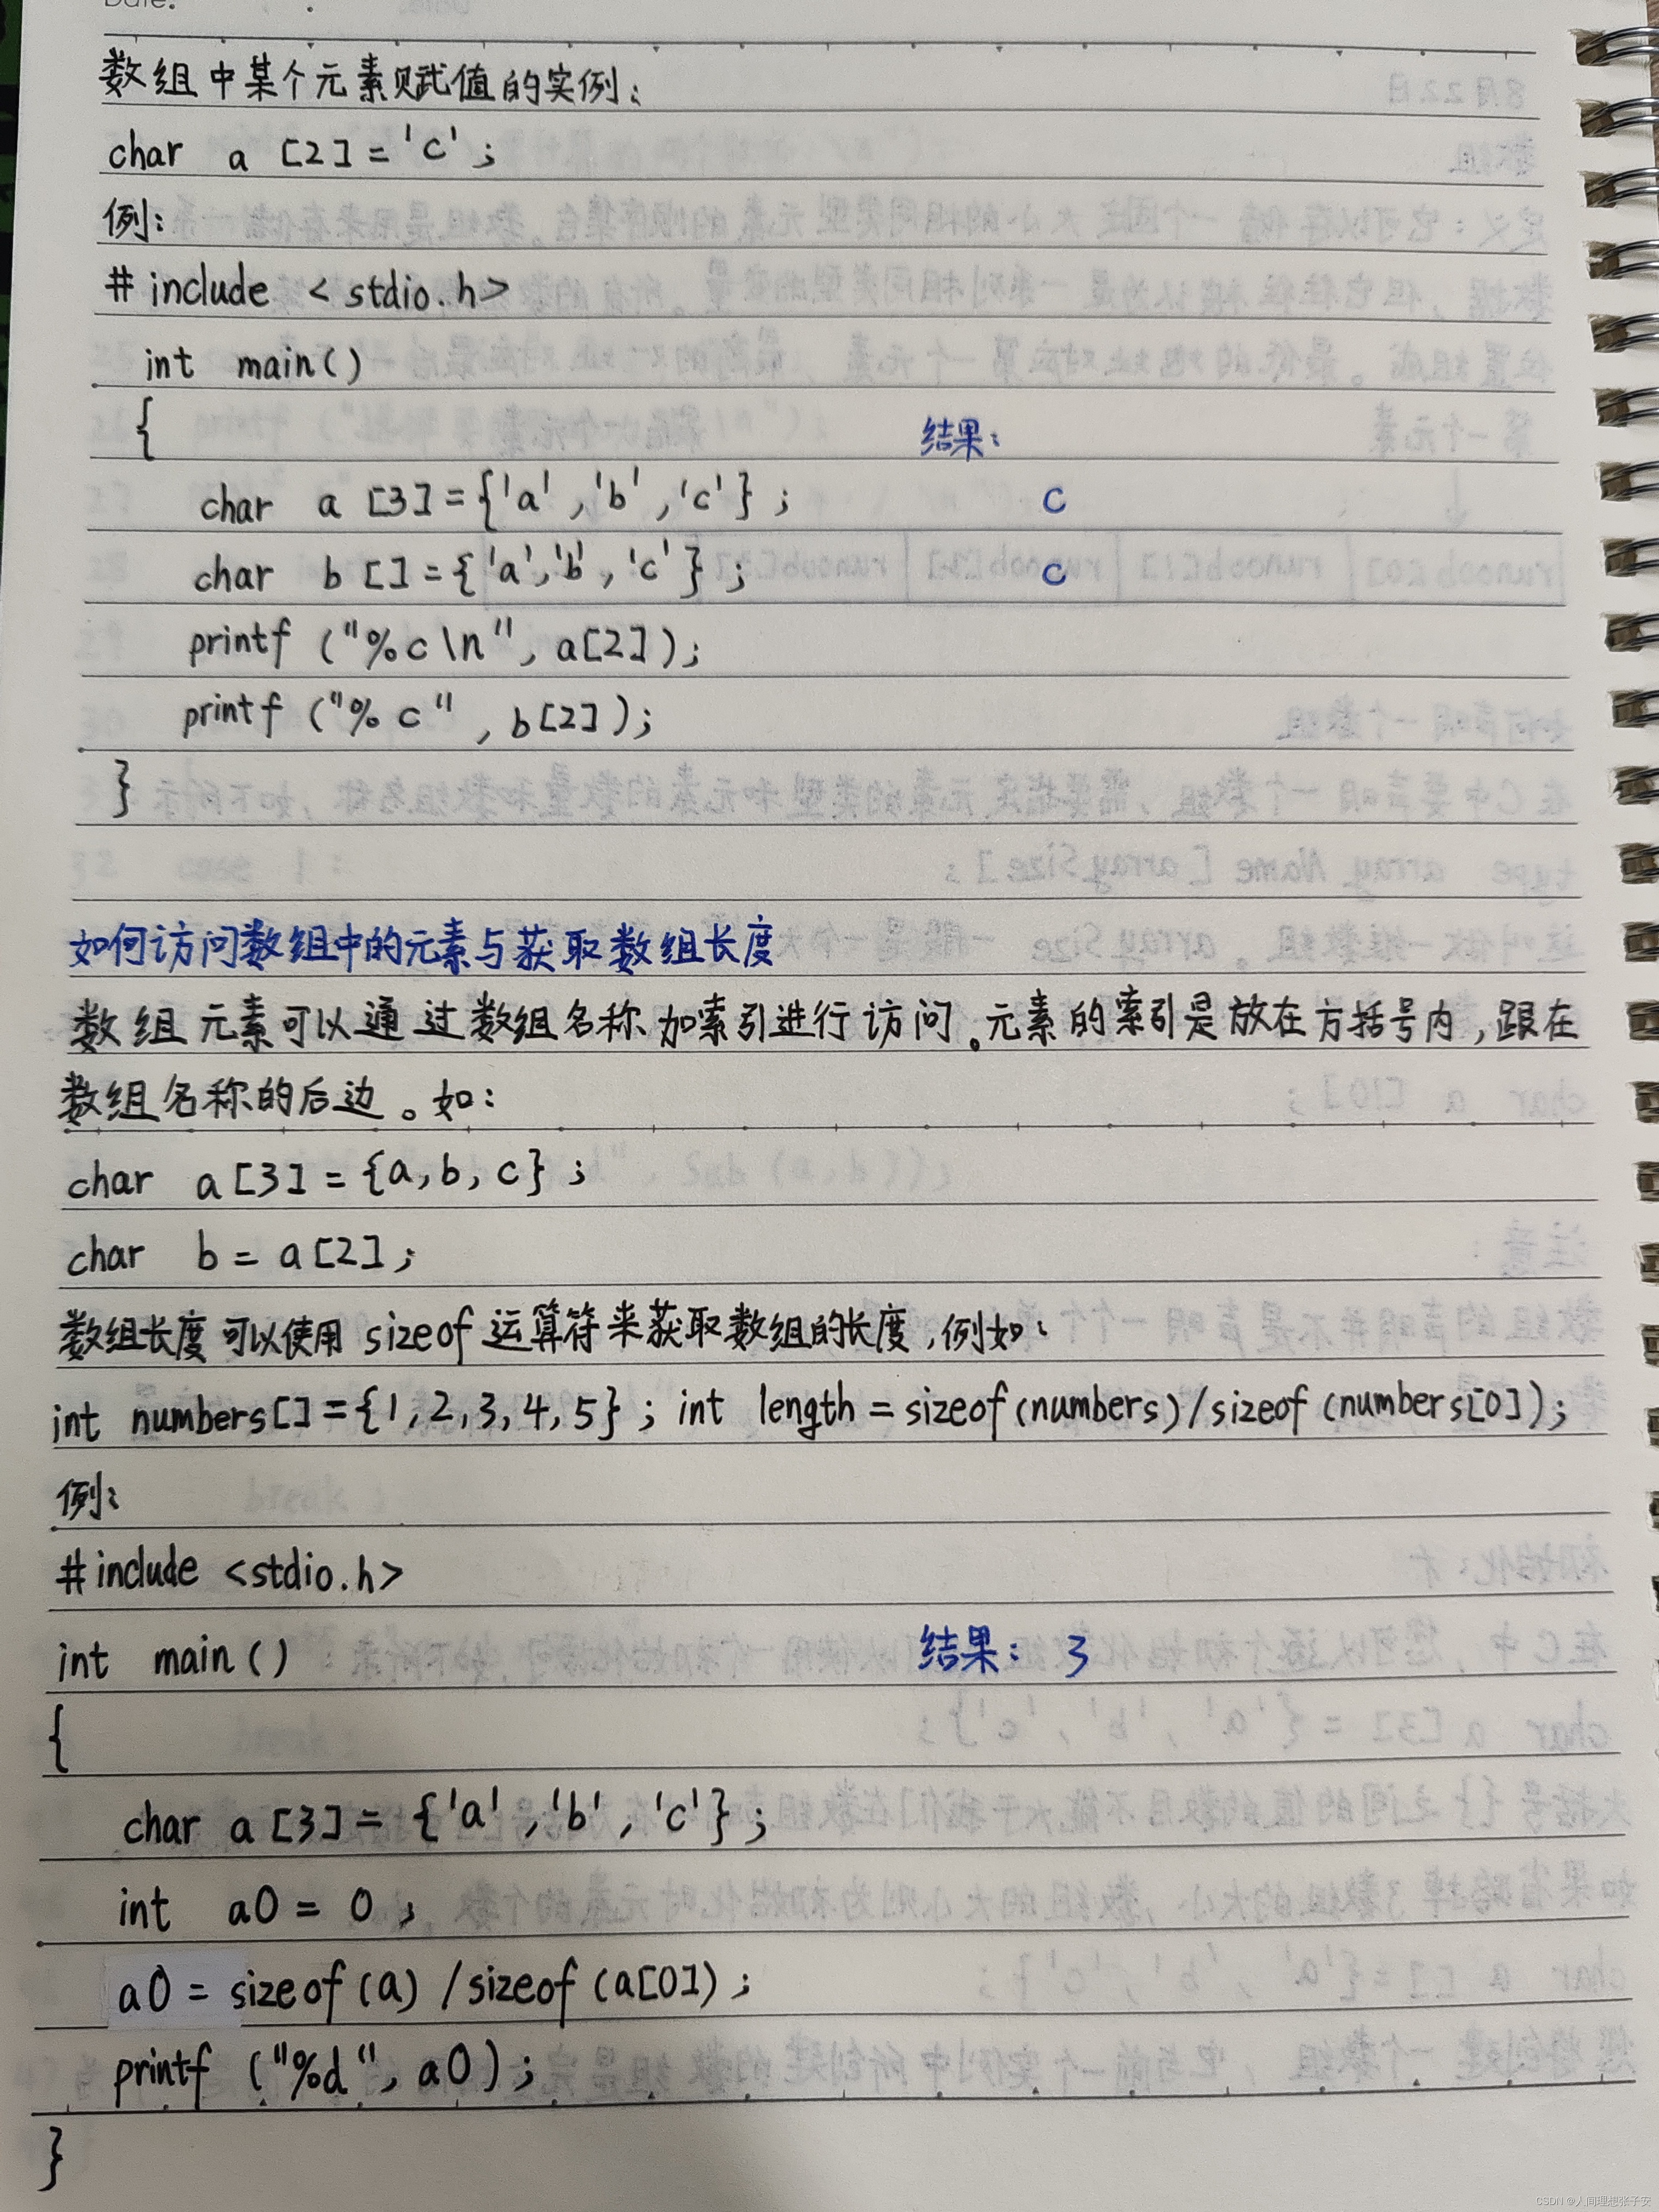 Date.
数组中某个元素赋值的实例:
char a [2] = 'c' ;
例:
# include < stdio.h>
int main()
{
结果:
char a [3] = {'a' , 'b' , 'c'} ;
c
char b [] = {'a','b' , 'c'} ;
c
printf ("%c\n", a[2]);
printf ("%c" , b[2]);
}
如何访问数组中的元素与获取数组长度
数组元素可以通过数组名称加索引进行访问。元素的索引是放在方括号内,跟在
数组名称的后边。如:
char a[3] = {a, b, c} ;
char b = a[2] ;
数组长度可以使用 sizeof 运算符来获取数组的长度,例如:
int numbers[] = {1, 2, 3, 4, 5} ; int length = sizeof(numbers)/sizeof (numbers[0]);
例:
#include <stdio.h>
int main ()
结果: 3
{
char a [3] = {'a' , 'b' , 'c'} ;
int a0 = 0 ;
a0 = sizeof (a) / sizeof (a[0]) ;
printf ("%d", a0) ;
}
CSDN @人间理想张子安